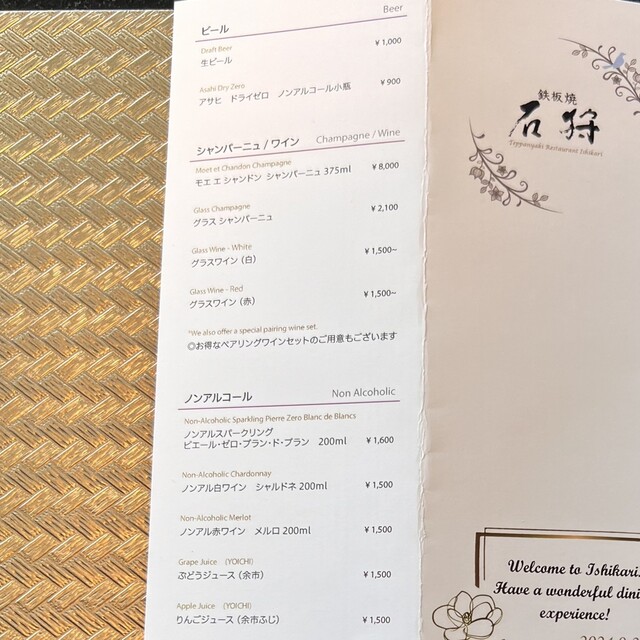 Beer
ビール
Draft Beer
生ビール ¥1,000
Asahi Dry Zero
アサヒ ドライゼロ ノンアルコール小瓶 ¥900
シャンパーニュ / ワイン Champagne / Wine
Moet et Chandon Champagne
モエ エ シャンドン シャンパーニュ 375ml ¥8,000
Glass Champagne
グラス シャンパーニュ ¥2,100
Glass Wine - White
グラスワイン (白) ¥1,500~
Glass Wine - Red
グラスワイン (赤) ¥1,500~
*We also offer a special pairing wine set.
◎お得なペアリングワインセットのご用意もございます
ノンアルコール Non Alcoholic
Non-Alcoholic Sparkling Pierre Zero Blanc de Blancs
ノンアルスパークリング
ピエール・ゼロ・ブラン・ド・ブラン 200ml ¥1,600
Non-Alcoholic Chardonnay
ノンアル白ワイン シャルドネ 200ml ¥1,500
Non-Alcoholic Merlot
ノンアル赤ワイン メルロ 200ml ¥1,500
Grape Juice (YOICHI)
ぶどうジュース (余市) ¥1,500
Apple Juice (YOICHI)
りんごジュース (余市ふじ) ¥1,500
鉄板焼
石狩
Teppanyaki Restaurant Ishikari
Welcome to Ishikari.
Have a wonderful dini
experience!